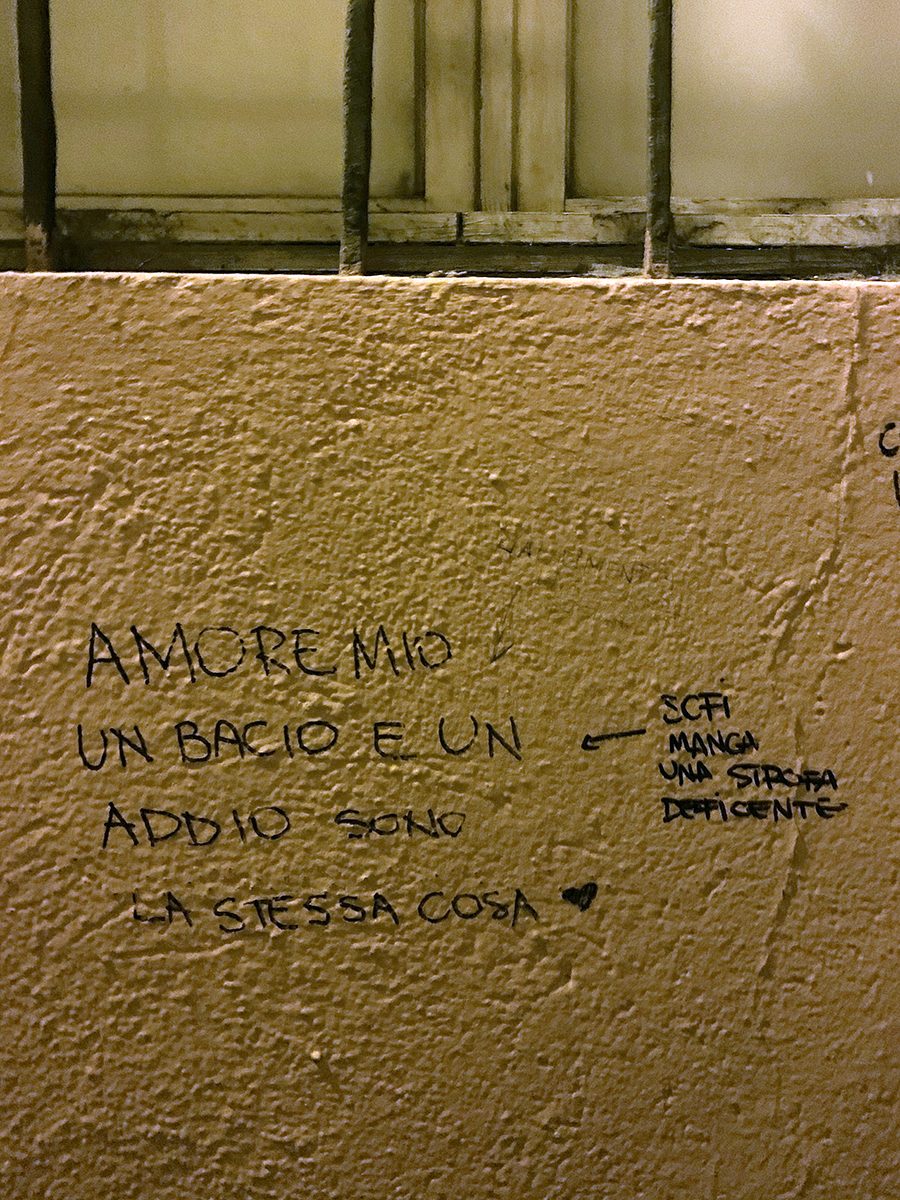 AMORE MIO
UN BACIO E UN
ADDIO SONO
LA STESSA COSA ♥
SCFI
MANGA
UNA STROFA
DEFFICENTE